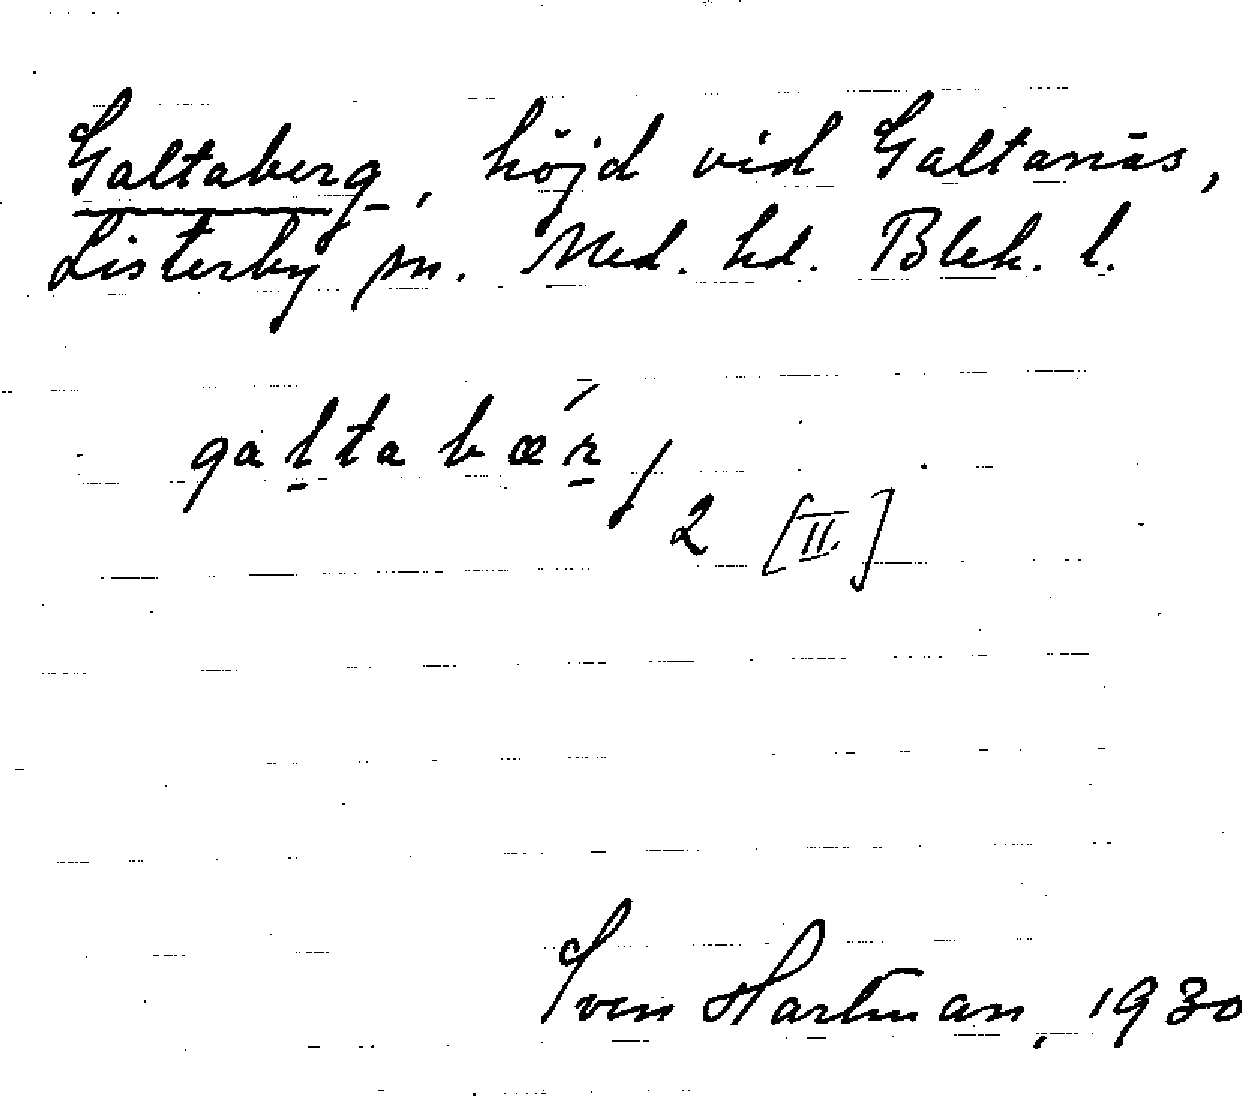 Galtaberg, höjd vid Galtanäs,
Listerby sn. Med. hd. Blek. l.
galtabær/
2 [II]
Sven Hartman, 1930